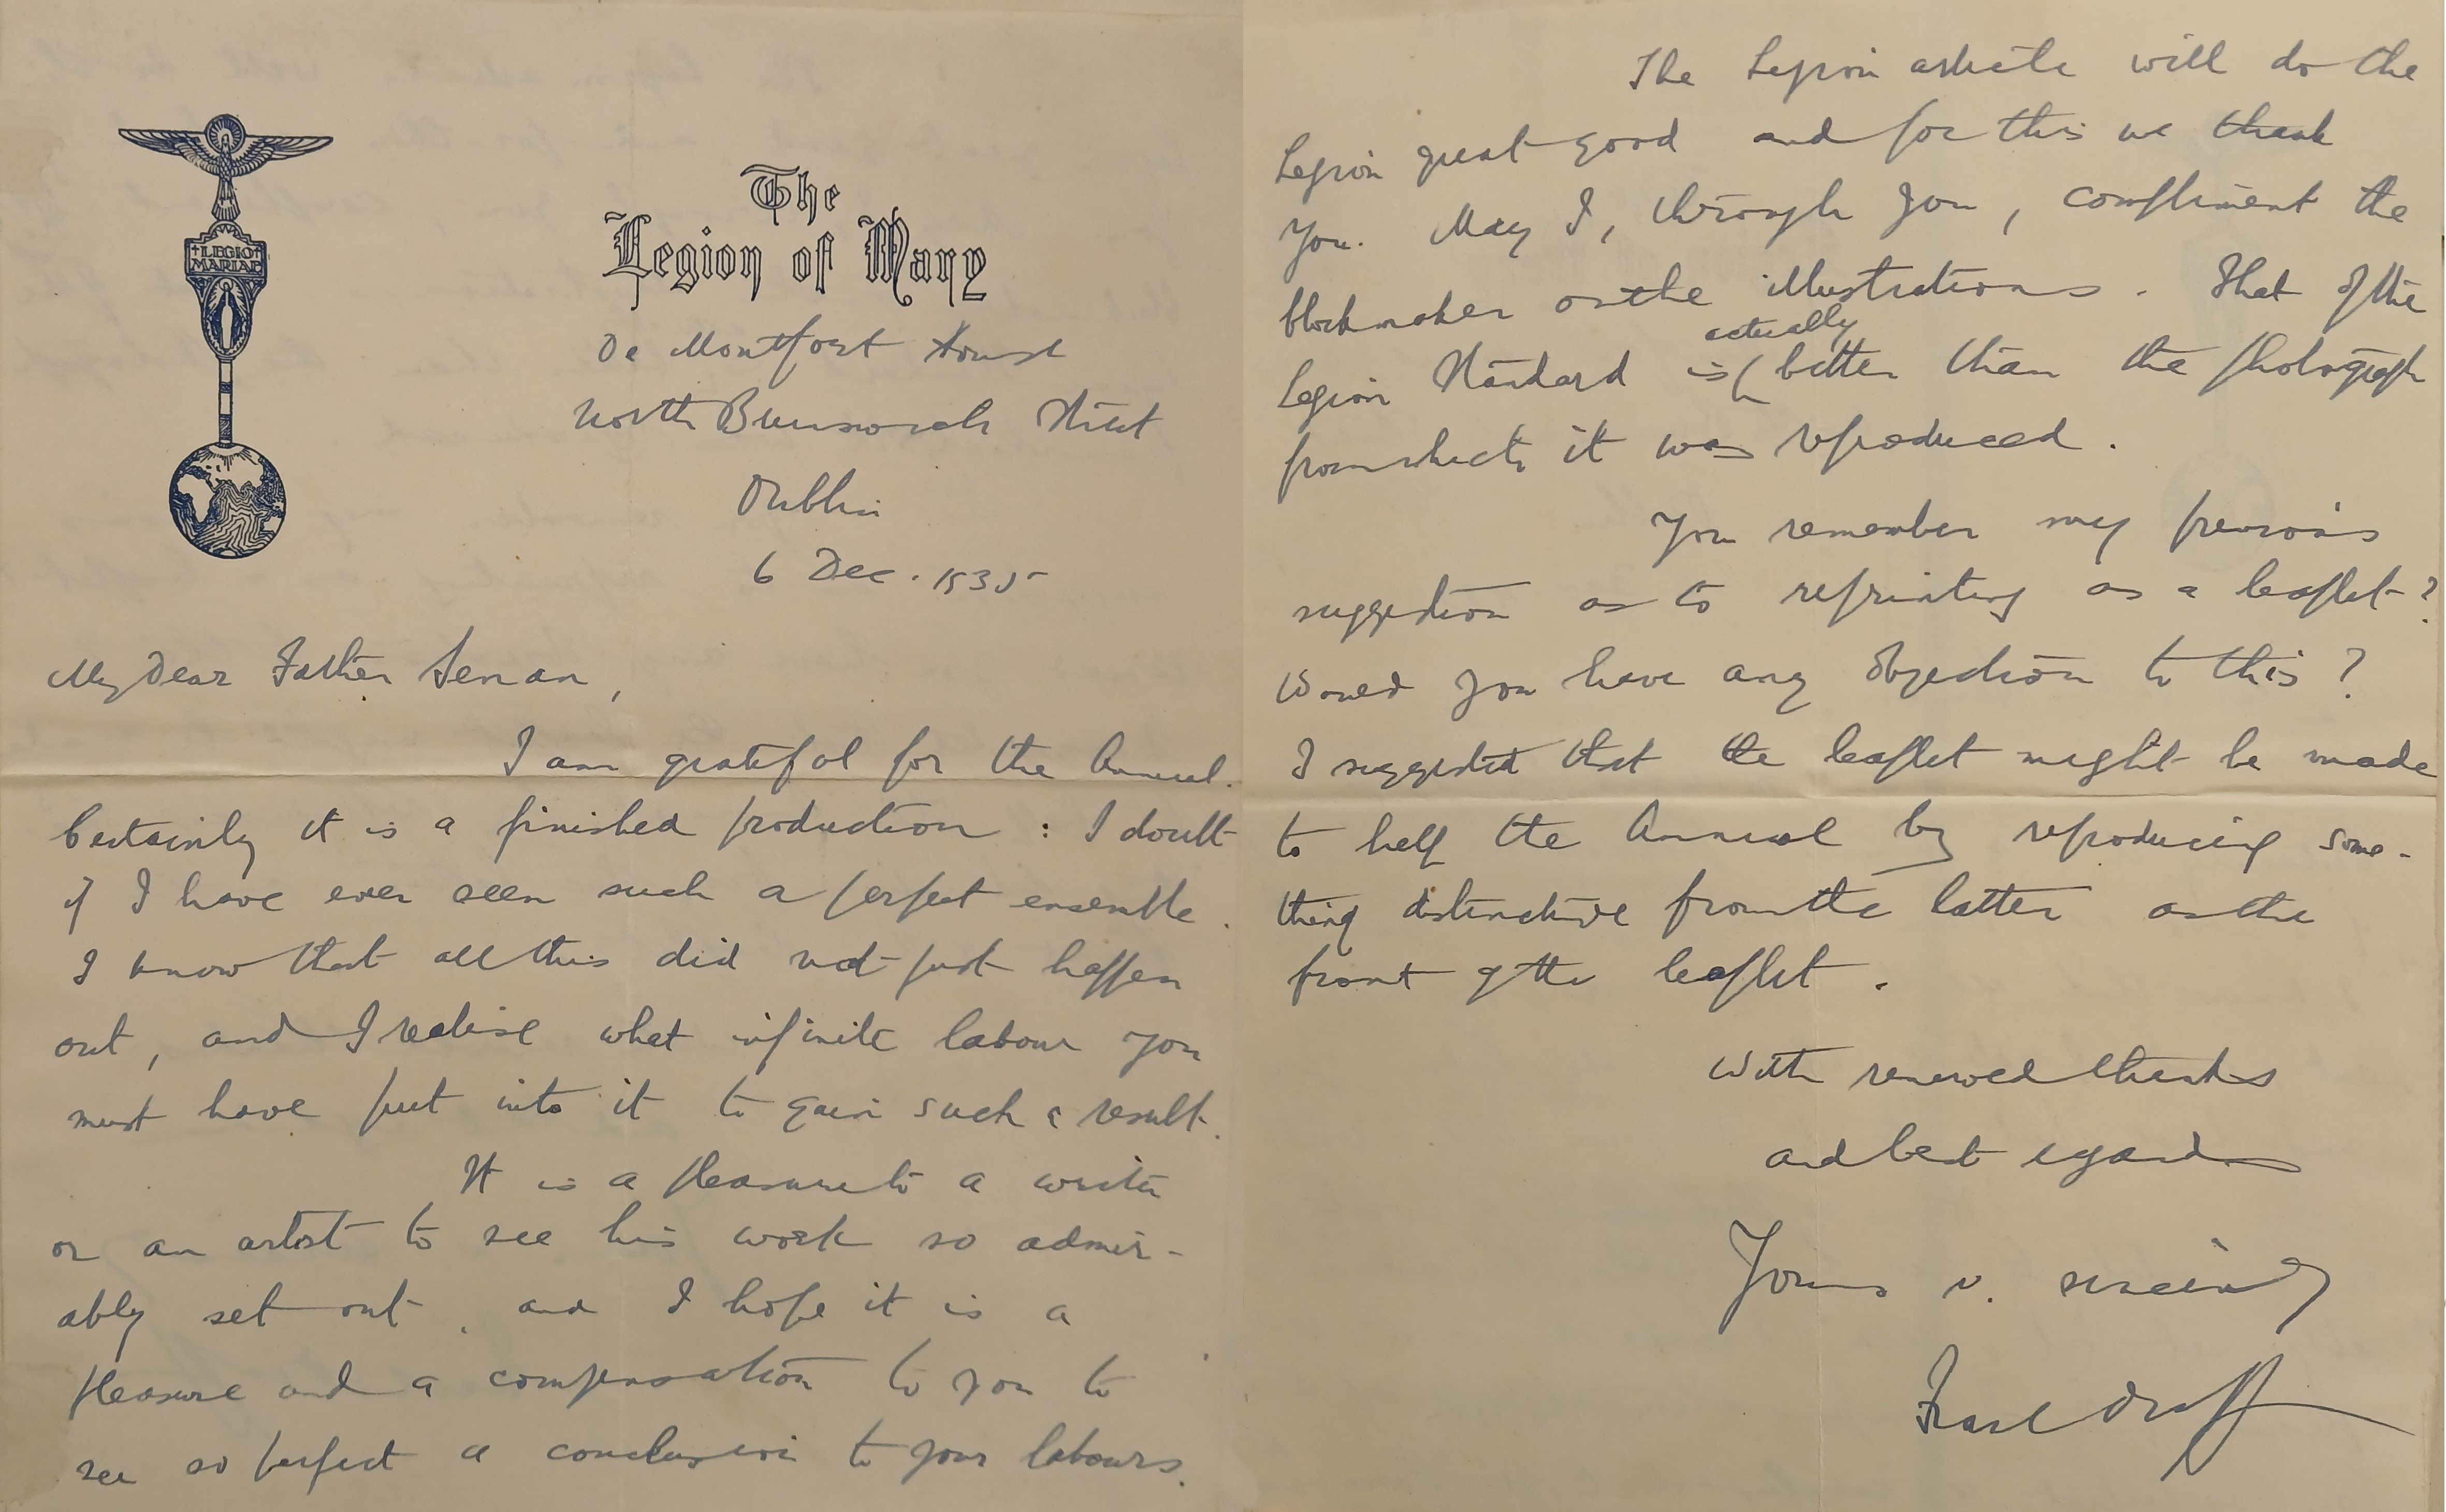 LEGIO
MARIAE
The
Legion of Mary
De Montfort House
North Brunswick Street
Dublin
6 Dec. 1935
My Dear Father Senan,
I am grateful for the Annual.
Certainly it is a finished production : I doubt
if I have ever seen such a perfect ensemble.
I know that all this did not just happen
out, and I realise what infinite labour you
must have put into it to gain such a result.
It is a pleasure to a writer
or an artist to see his work so admir-
ably set out, and I hope it is a
pleasure and a compensation to you to
see so perfect a conclusion to your labours.
The Legion article will do the
Legion great good and for this we thank
you. May I, through you, compliment the
blockmaker on the illustrations. That of the
actually
Legion Standard is better than the photograph
from which it was reproduced.
You remember my previous
suggestion as to reprinting as a leaflet?
Would you have any objection to this?
I suggested that the leaflet might be made
to help the Annual by reproducing some-
thing distinctive from the latter as the
front of the leaflet.
With renewed thanks
and best regards
Yours v. sincerely
Frank Duff